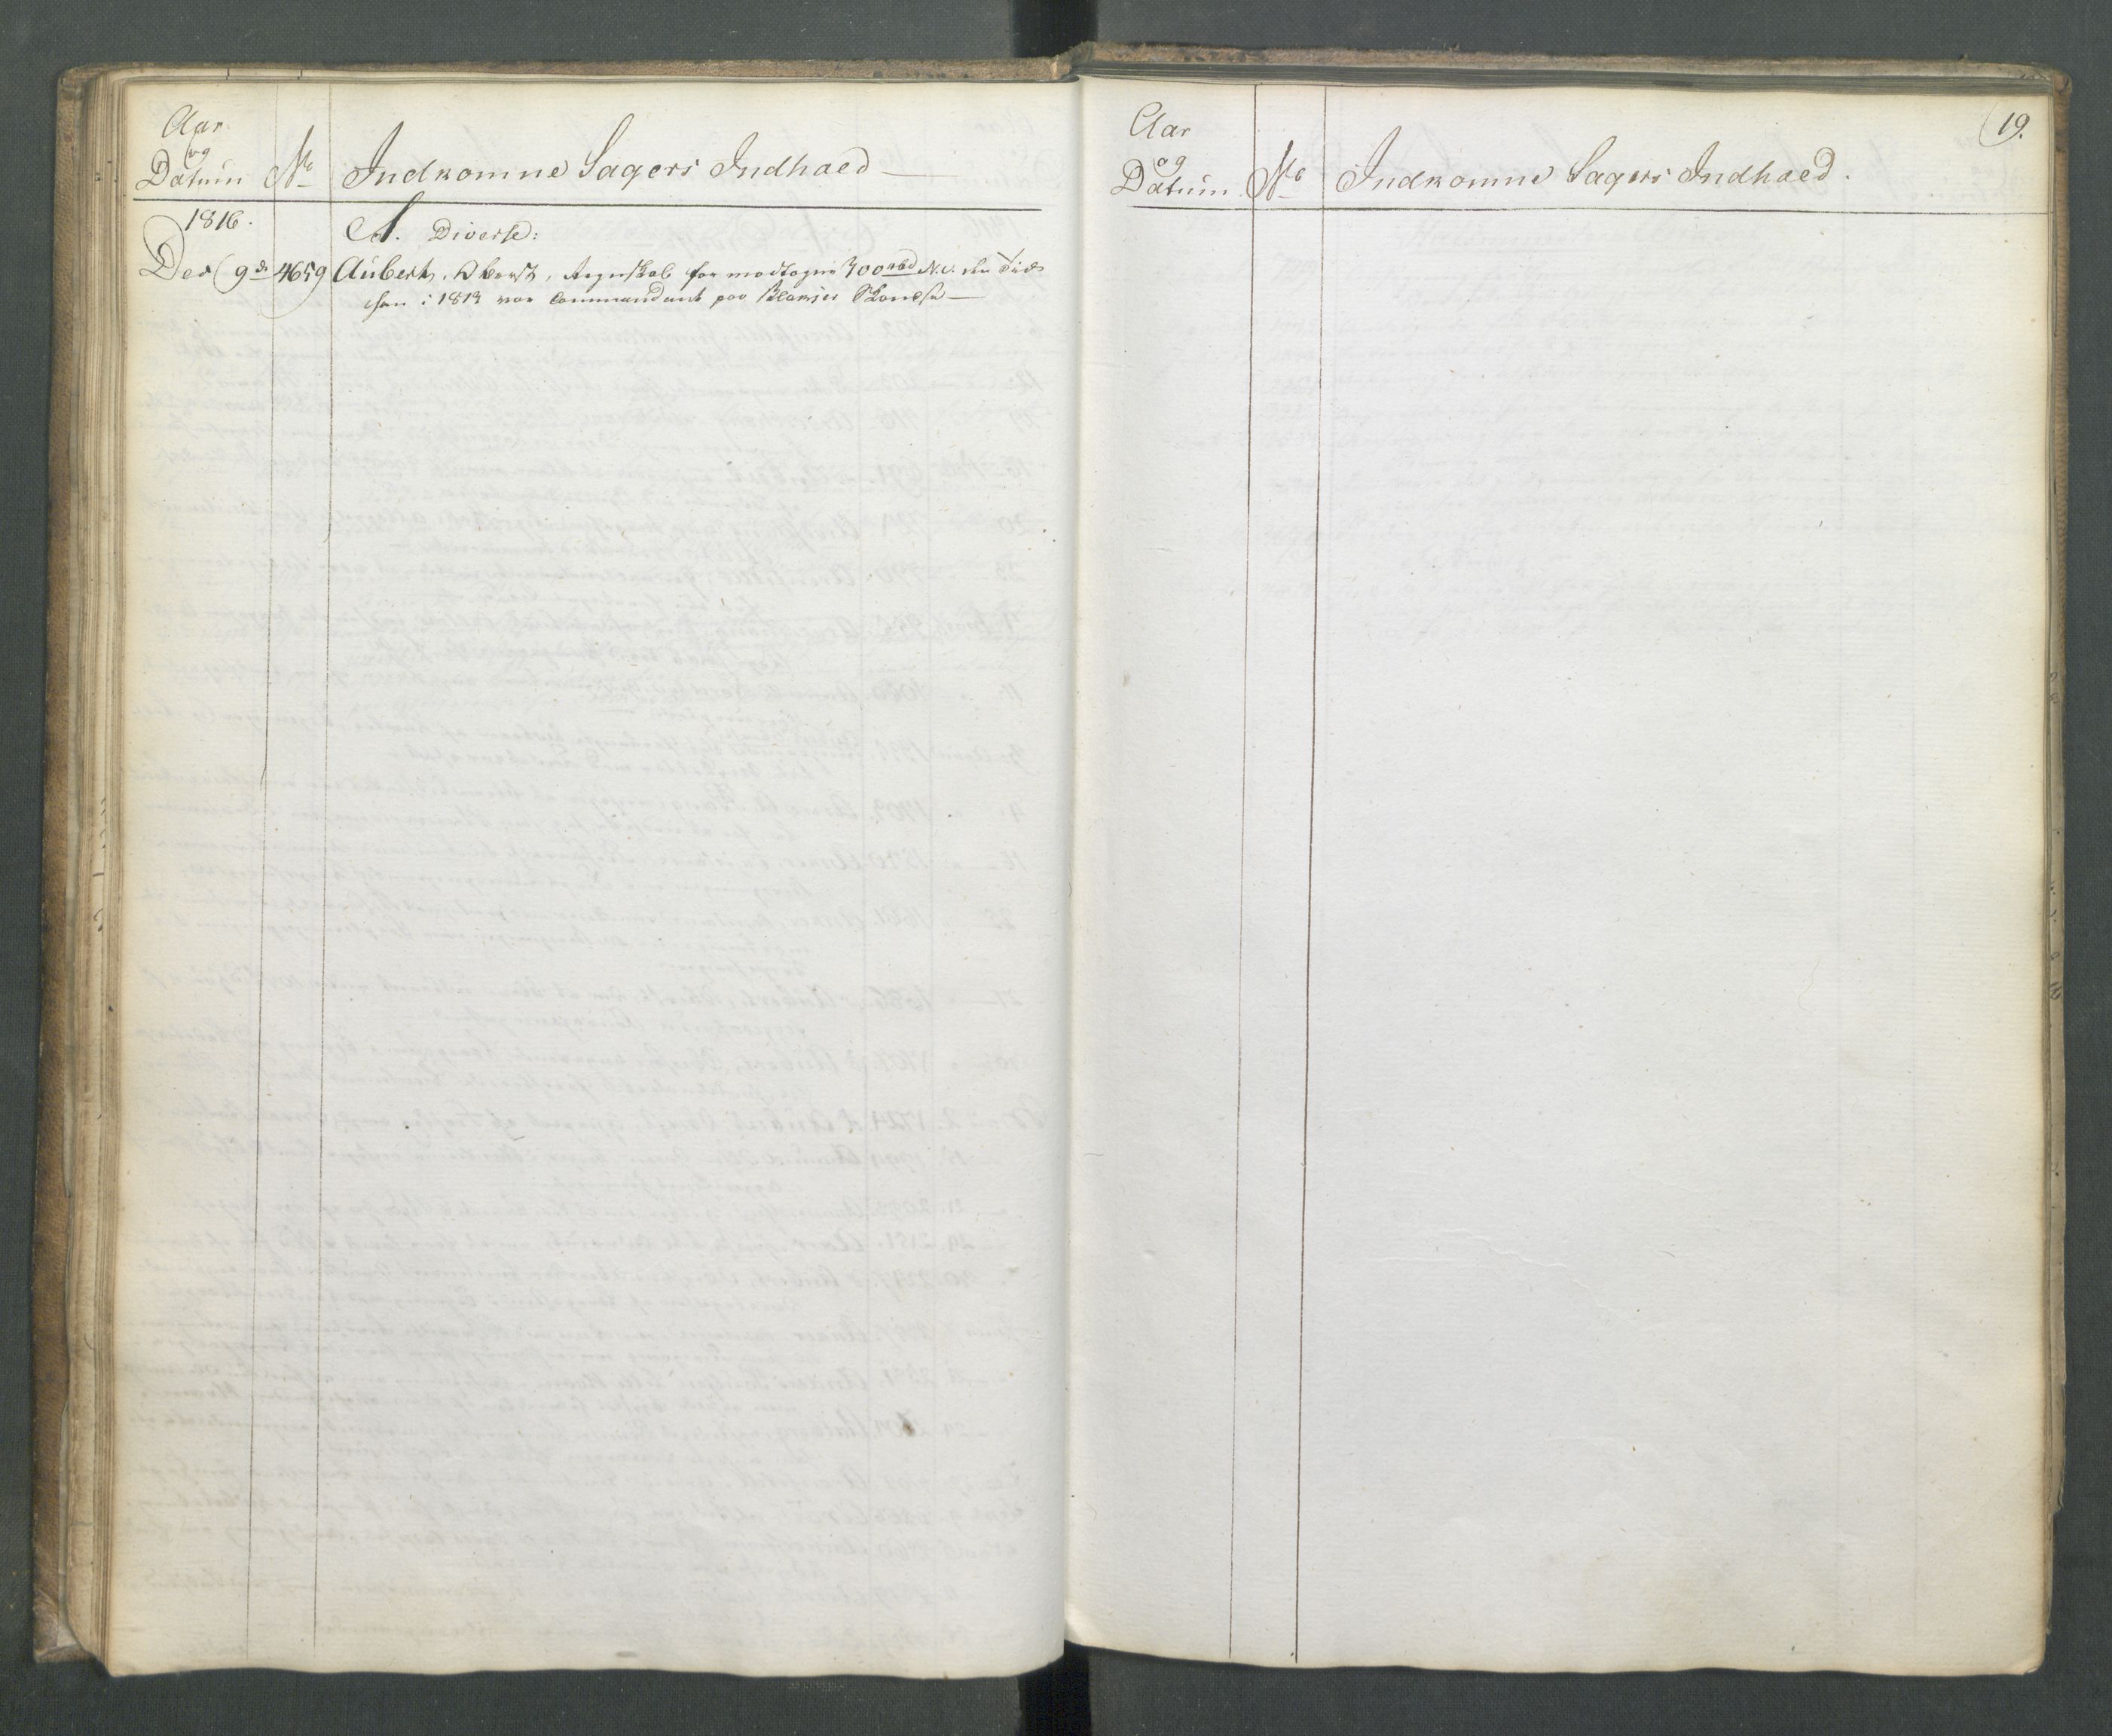 Aar
og
Datum No Indkomne Sagers Indhold
1816. A. Diverse:
Dec 9de 4659 Aubert, Oberst, Regnskab for modtagne 300 rbd N.V. den Tid
han i 1813 var Commandant paa Blakjer Skandse
19.
Aar
og
Datum No Indkomne Sagers Indhold.